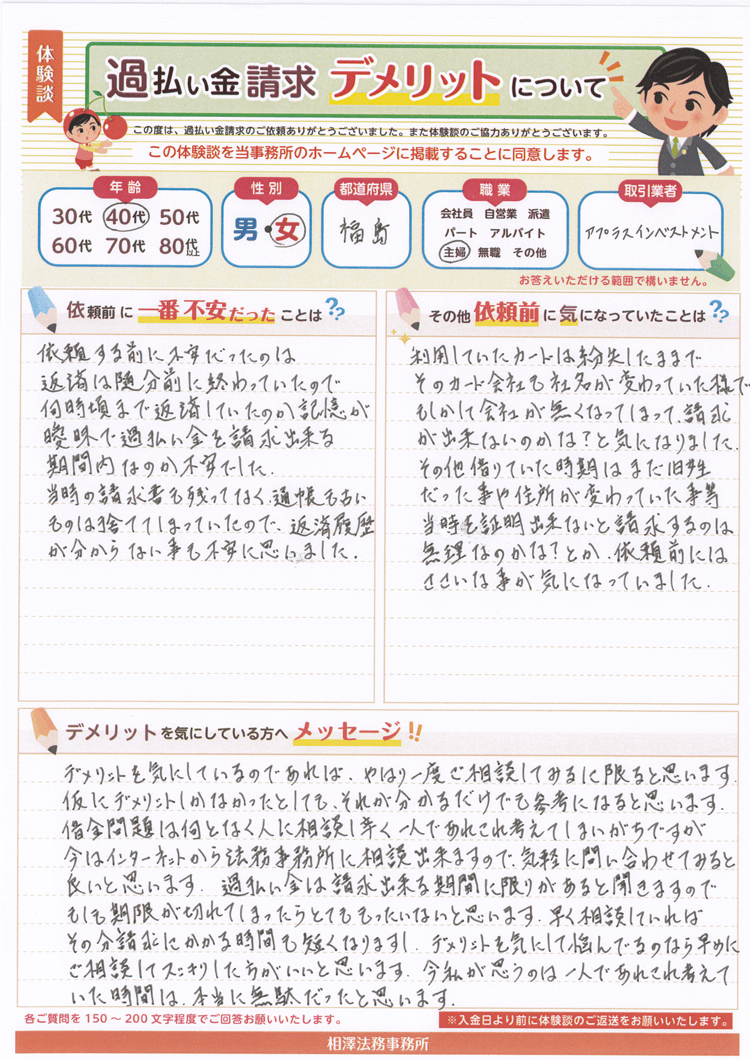 体験談
過払い金請求 デメリットについて
この度は、過払い金請求のご依頼ありがとうございました。また体験談のご協力ありがとうございます。
この体験談を当事務所のホームページに掲載することに同意します。
年齢
30代 40代 50代
60代 70代 80代以上
性別
男・女
都道府県
福島
職業
会社員 自営業 派遣
パート アルバイト
主婦 無職 その他
取引業者
アプラスインベストメント
お答えいただける範囲で構いません。
依頼前に一番不安だったことは??
依頼する前に不安だったのは
返済は随分前に終わっていたので
何時頃まで返済していたのか記憶が
曖昧で過払い金を請求出来る
期間内なのか不安でした.
当時の請求書も残ってなく、通帳も古い
ものは捨ててしまっていたので、返済履歴
が分からない事も不安に思いました.
その他依頼前に気になっていたことは??
利用していたカードは紛失したままで
そのカード会社も社名が変わっていた様で
もしかして会社が無くなってしまって、請求
が出来ないのかな?と気になりました.
その他借りていた時期はまだ旧姓
だった事や住所が変わっていた事等
当時を証明出来ないと請求するのは
無理なのかな?とか、依頼前には
ささいな事が気になっていました.
デメリットを気にしている方へメッセージ!!
デメリットを気にしているのであれば、やはり一度ご相談してみるに限ると思います.
仮にデメリットしかなかったとしても、それが分かるだけでも参考になると思います.
借金問題は何となく人に相談し辛く一人であれこれ考えてしまいがちですが
今はインターネットから法務事務所に相談出来ますので、気軽に問い合わせてみると
良いと思います. 過払い金は請求出来る期間に限りがあると聞きますので
もしも期限が切れてしまったらとてももったいないと思います. 早く相談していれば
その分請求にかかる時間も短くなりますし、デメリットを気にして悩んでるのなら早めに
ご相談してスッキリした方がいいと思います. 今私が思うのは一人であれこれ考えて
いた時間は、本当に無駄だったと思います.
各ご質問を150～200文字程度でご回答お願いいたします。
※入金日より前に体験談のご返送をお願いいたします。
相澤法務事務所